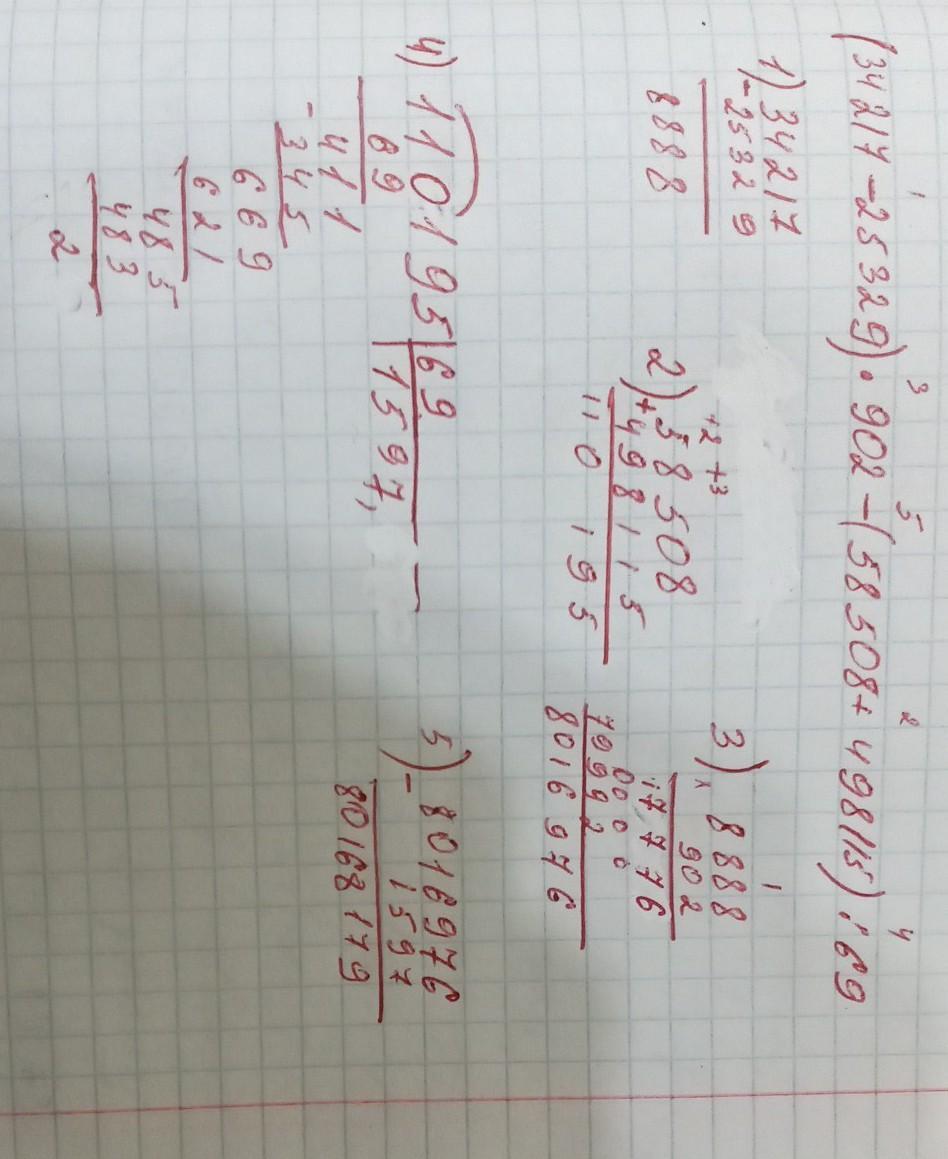 (34217-25329)·902-(58508+498115):69
1) 34217
-25329
8888
2) 58508
+498115
110195
3) 8888
× 902
17776
0000
79992
8016976
4) 110195|69
69
1597,
411
-345
669
621
485
483
2
5) 8016976
- 1597
80168179